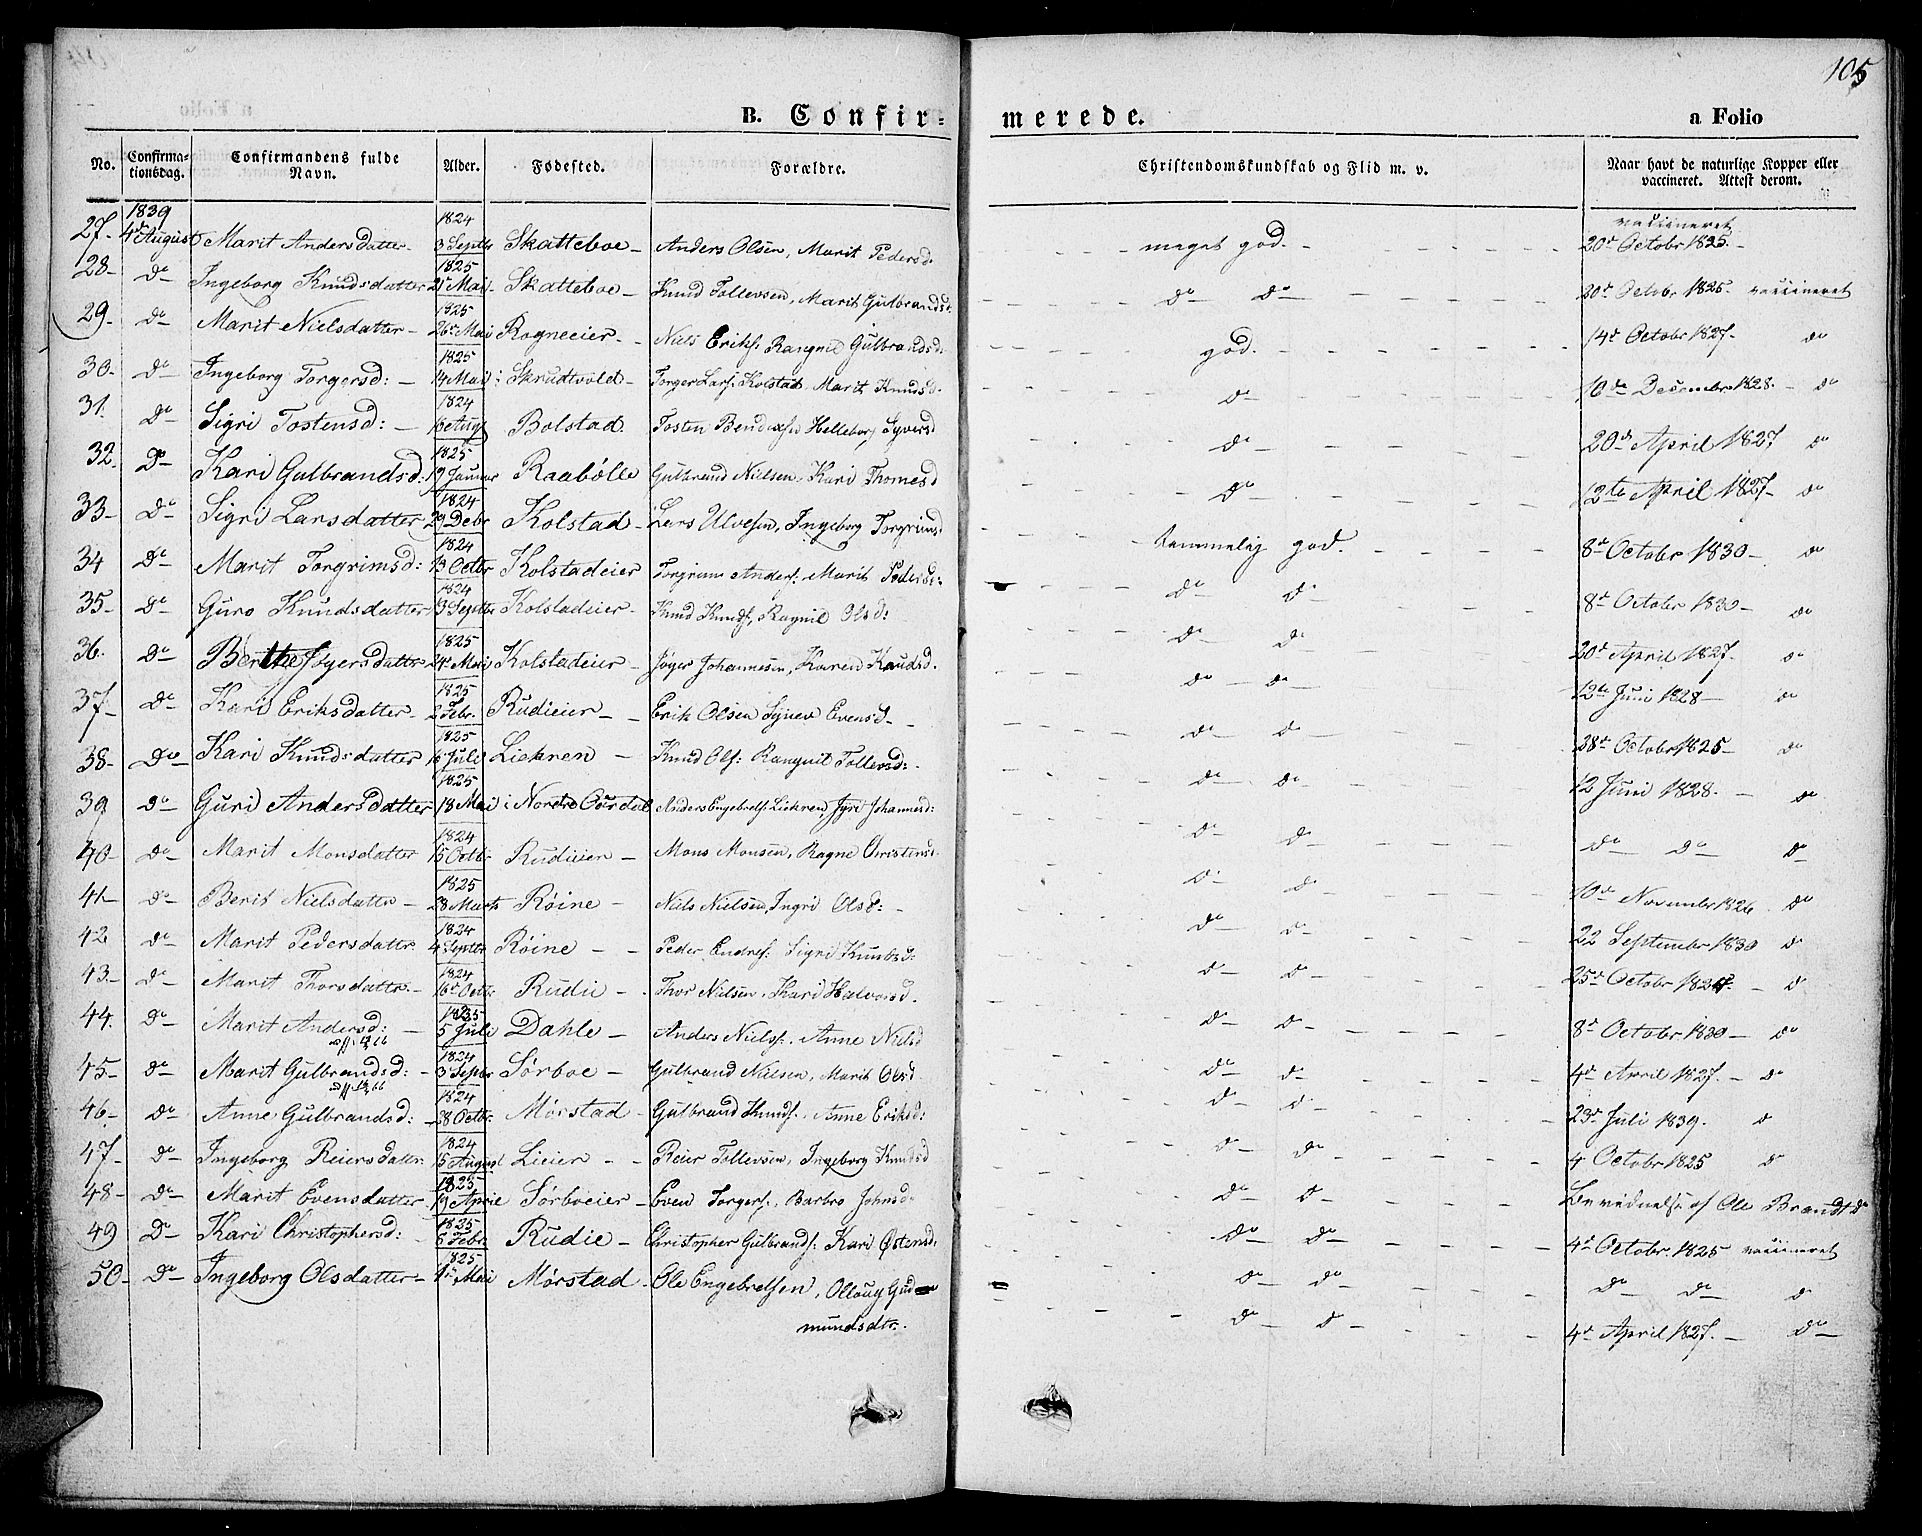 105
B. Confirmerede. a Folio
No. Confirmationsdag. Confirmandens fulde Navn. Alder. Fødested. Forældre. Christendomskundskab og Flid m. v. Naar havt de naturlige Kopper eller vaccineret. Attest derom.
1839 1824 vaccineret
27. 4d August Marit Andersdatter 3 Septbr Skatteboe Anders Olsen, Marit Pedersd. meget god. 20d Octobr 1825.
1825
28 do Ingeborg Knudsdatter 21 Mai Skatteboe Knud Tollevsen, Marit Gulbrandsd: do do 20d Octobr 1825. vaccineret
1825
29. do Marit Nielsdatter 26de Mai Rogneeier Niels Eriks: Rangnil Gulbrandsd. god. 14d Octobr 1827. do
1825
30 do Ingeborg Torgersd: 14 Mai Skrudtvold Torger Lars: Kolstad, Marit Knudsd. do 10de Decembr 1828. do
1824
31. do Sigri Tostensd: 16 Aug Bolstad. Tosten Bendixsen Helleborg Syversd do 20d April 1827 do
1825
32. Do Kari Gulbrandsd: 19 Januar Raabølle Gulbrand Nielsen, Kari Thomesd do 13te April 1827 do
1824
33 do Sigri Larsdatter 29 Debr Kolstad Lars Ulvesen, Ingeborg Torgrimsd temmelig god. 8d Octobr 1830 do
1824
34 do Marit Torgrimsd: 13 Octbr Kolstadeier Torgrim Anders: Marit Pedersd: do do 8d Octobr 1830 do
1824
35 do Guro Knudsdatter 3 Septbr Kolstadeier Knud Knuds, Ragnil Olsd: do do 20d April 1827. do
1825
36. do Berthe Jøgersdatter 24 Mai Kolstadeier Jøger Johannesen, Karen Knudsd. do do 12te Juni 1828 do
1825
37 do Kari Eriksdatter 2 Febr. Rudieier Erik Olsen Synev Evensd do do 28d Octobr 1825 do
1825
38 do Kari Knudsdatter 16 Juli Liekren Knud Ols: Rangnil Tollevsd: do do 12 Juni 1828. do
1825
39 do Guri Andersdatter 18 Mai i Nordre Ourdal Anders Engebrets: Liekren, Jyri Johannesd: do do do do do
1824
40 do Marit Monsdatter 15 Octbr Rudieier Mons Monsen, Ragne Christensd. do do 10d Novembr 1826 do
1825
41 do Berit Nielsdatter 28 Marts Røine Niels Nielsen, Ingri Olsd: do do 22 Septembr 1830 do
1824
42 do Marit Pedersdatter 4 Septbr Røine Peder Endres: Sigri Knudsd: do do 25d Octobr 1827. do
1824
43 do Marit Thorsdattr. 16d Octbr Rudie Thor Nielsen, Kari Halvorsd. do do 8d Octobr 1830 do
1825
44. do Marit Andersd: 5 Juli Dahle Anders Niels: Anne Nielsd do do 4d April 1827. do
1824
45 do Marit Gulbrandsd: 3 Septbr Sørboe Gulbrand Nielsen, Marit Olsd do do 23d Juli 1839. do
1824
46 do Anne Gulbrandsd: 28 Octbr: Mørstad Gulbrand Knuds: Anne Eriksd: do do 4 Octobr 1825 do
1824
47 do Ingeborg Reiersdattr. 15 August Lieier Reier Tollevsen, Ingeborg Knudsd do do Bevidnelse af Ole Brandt do
1825
48 do Marit Evensdatter 19 April Sørboeier Even Torgers:, Barbro Johnsd: do do 4d Octobr 1825 vaccineret
1825
49 do Kari Christophersd: 6 Febr. Rudie Christopher Gulbrands: Kari Østensd: do do do do do
1825
50 do Ingeborg Olsdatter 1ste Mai Mørstad Ole Engebretsen, Ollaug Gud- do do 4d April 1827. do
mundsdtr.